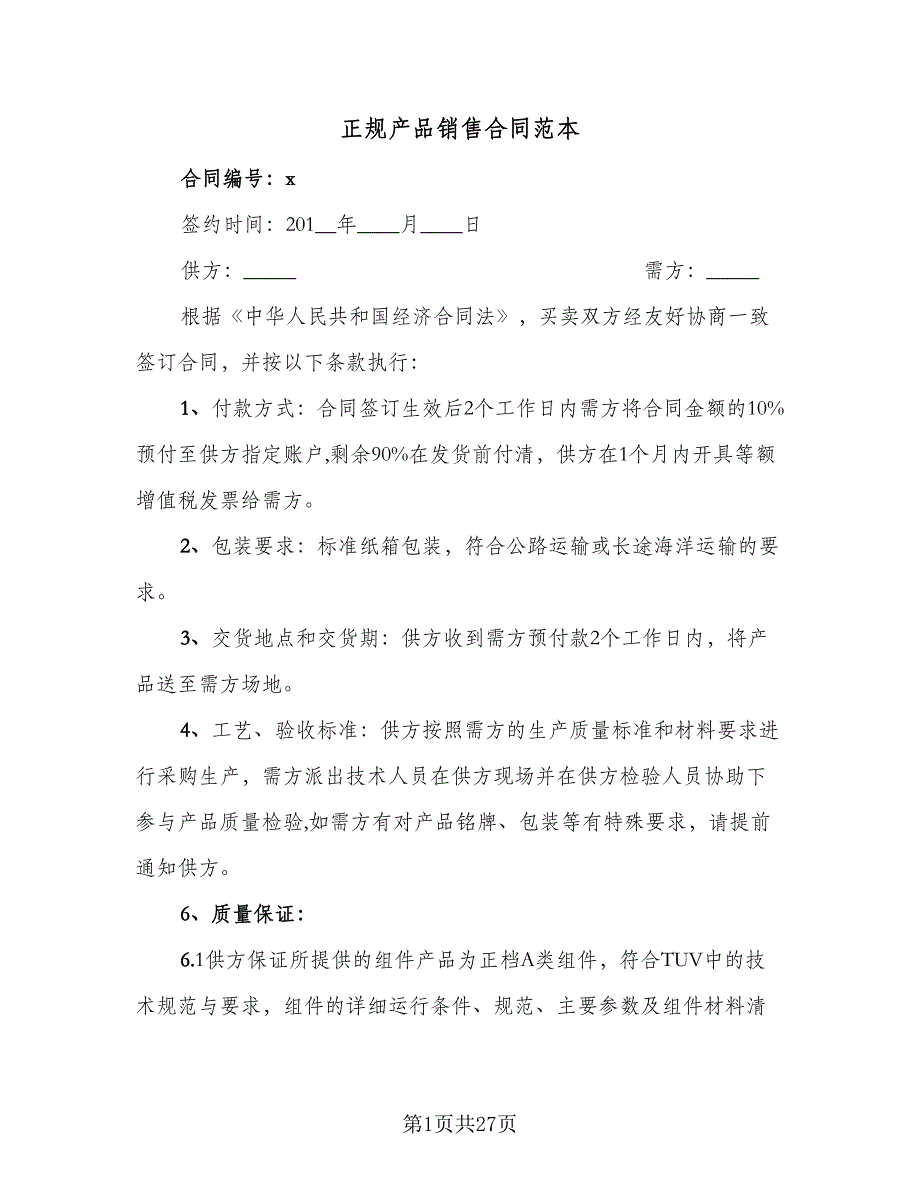 正规产品销售合同范本
合同编号：x
签约时间：201__年____月____日
供方：_____ 需方：_____
根据《中华人民共和国经济合同法》，买卖双方经友好协商一致
签订合同，并按以下条款执行：
1、付款方式：合同签订生效后2个工作日内需方将合同金额的10%
预付至供方指定账户,剩余90%在发货前付清，供方在1个月内开具等额
增值税发票给需方。
2、包装要求：标准纸箱包装，符合公路运输或长途海洋运输的要
求。
3、交货地点和交货期：供方收到需方预付款2个工作日内，将产
品送至需方场地。
4、工艺、验收标准：供方按照需方的生产质量标准和材料要求进
行采购生产，需方派出技术人员在供方现场并在供方检验人员协助下
参与产品质量检验,如需方有对产品铭牌、包装等有特殊要求，请提前
通知供方。
6、质量保证：
6.1供方保证所提供的组件产品为正档A类组件，符合TUV中的技
术规范与要求，组件的详细运行条件、规范、主要参数及组件材料清
第1页共27页